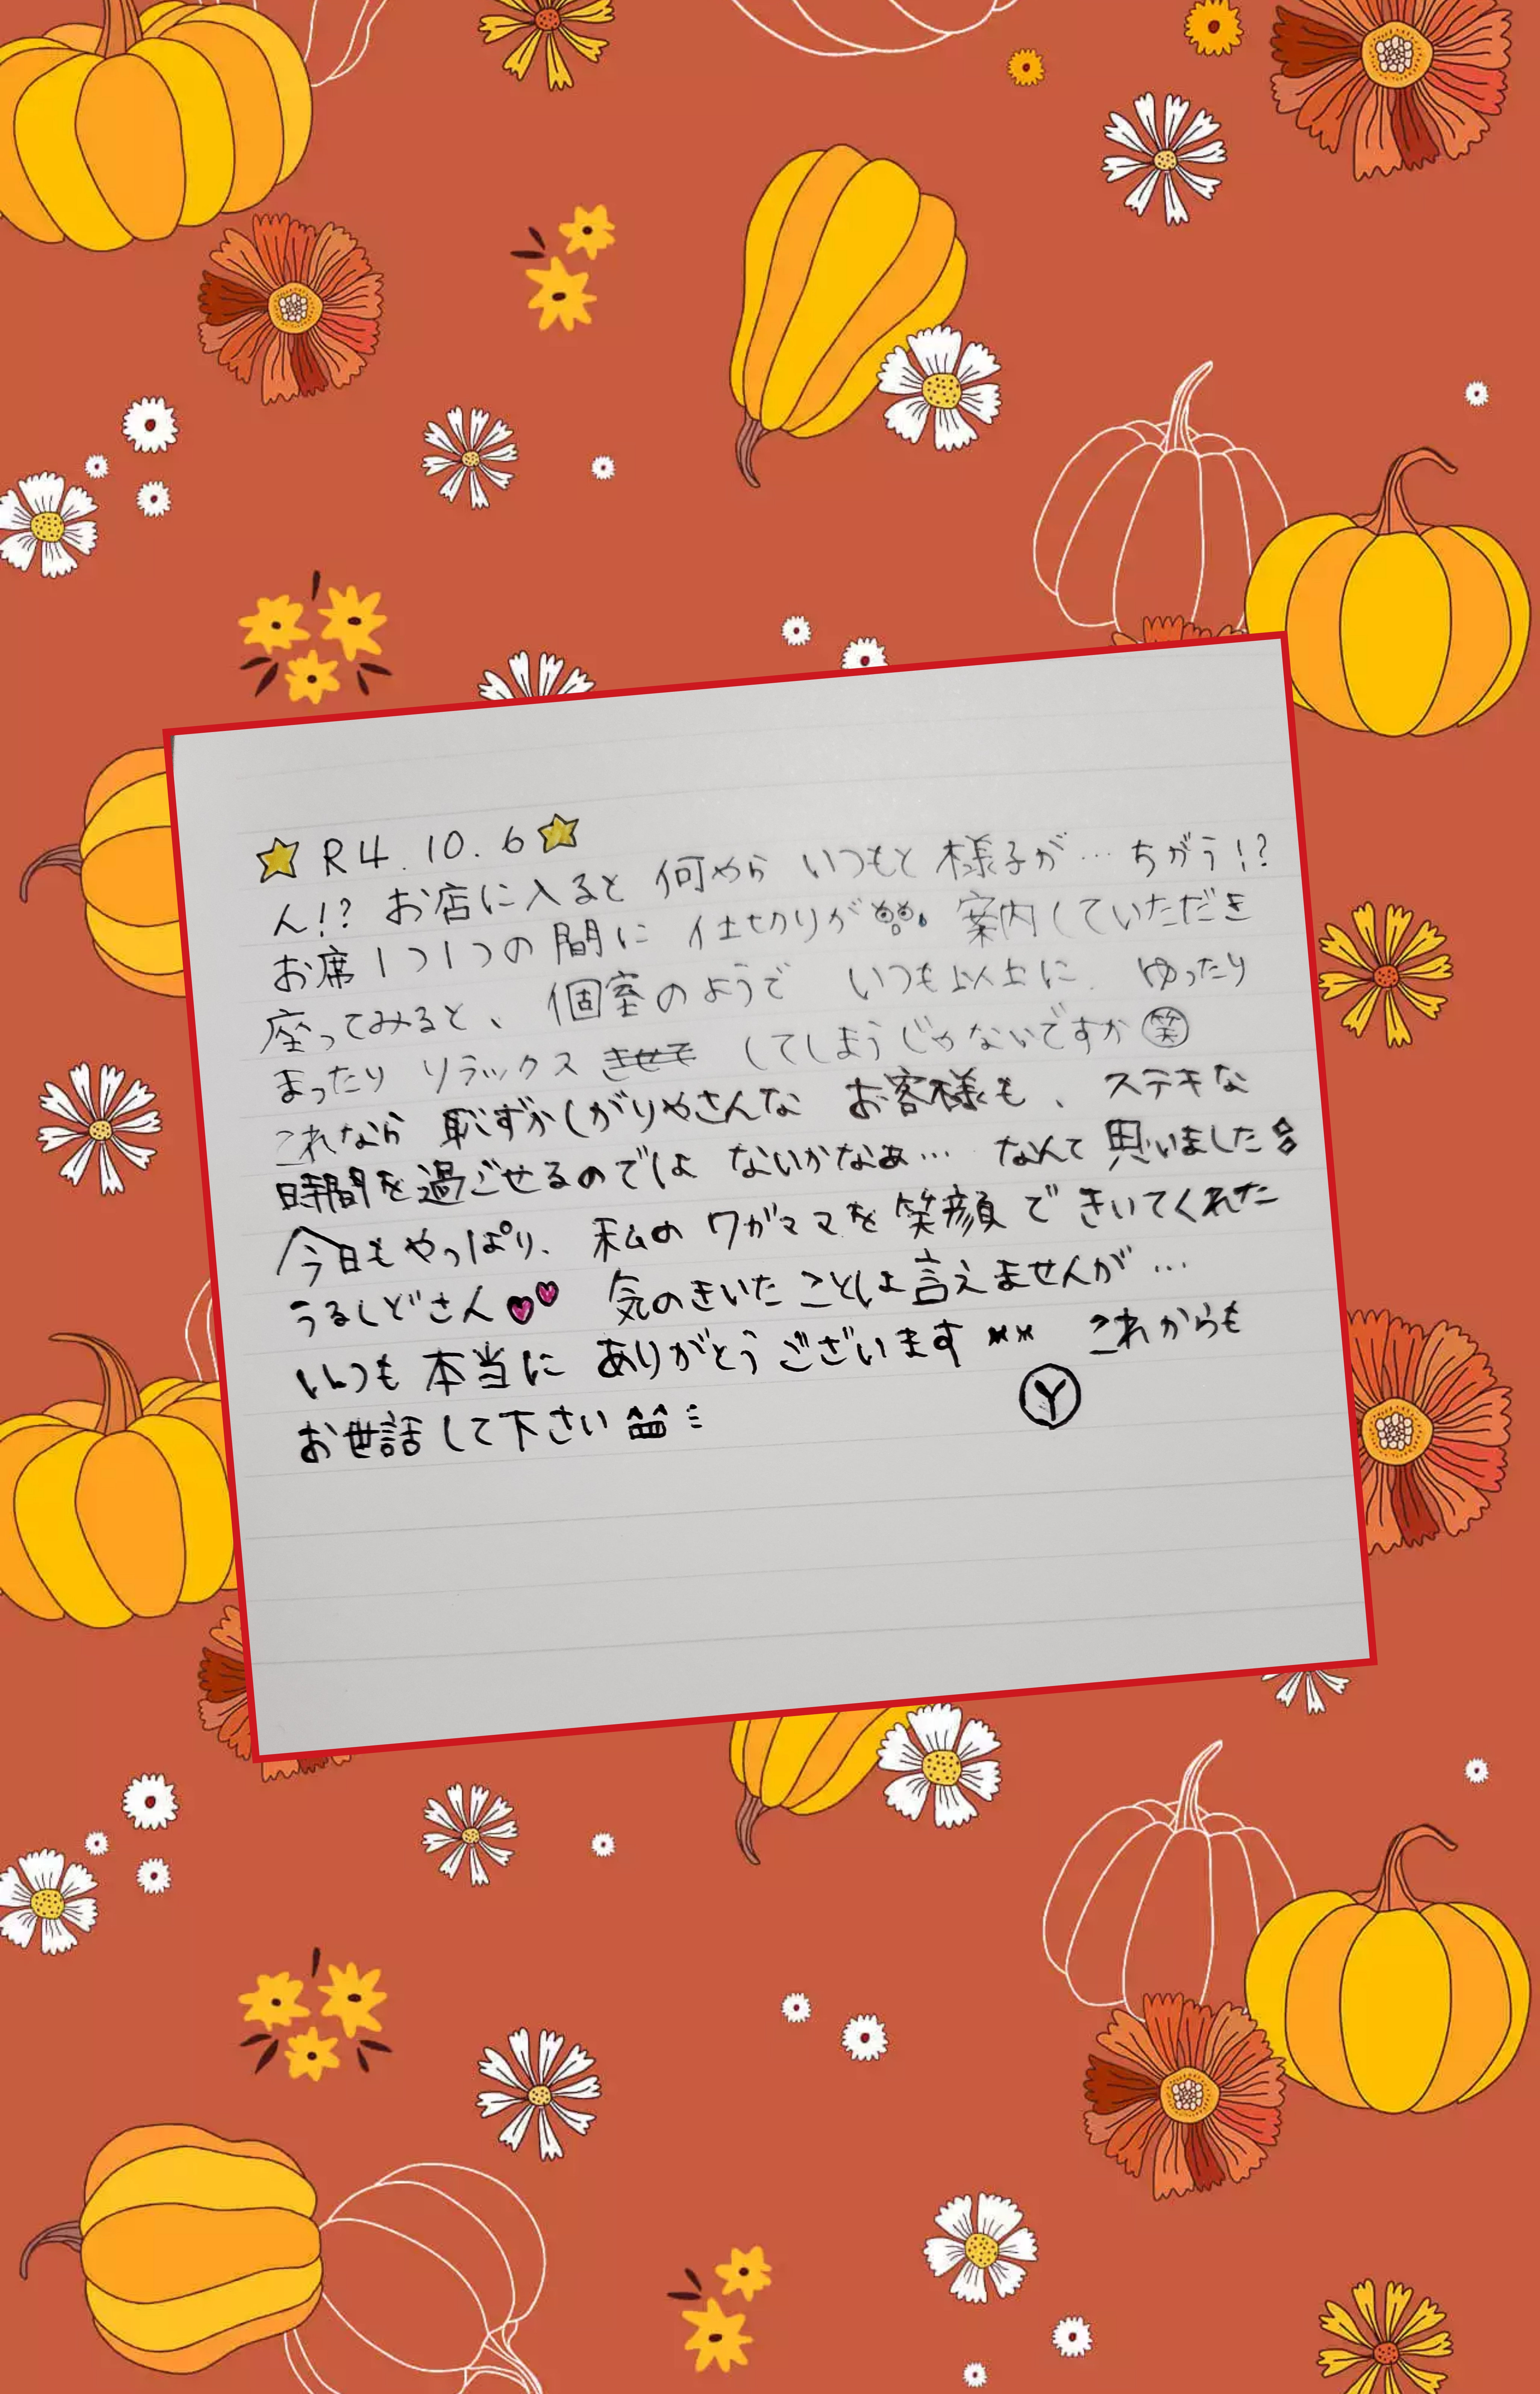 ☆R4.10.6☆
ん!? お店に入ると 何やら いつもと 様子が… ちがう!?
お席1つ1つの間に 仕切りが 案内していただき
座ってみると、個室のようで いつも以上に ゆったり
まったり リラックス してしまうじゃないですか㊗
これなら 恥ずかしがりやさんな お客様も、ステキな
時間を過ごせるのでは ないかなぁ… なんて 思いました
今日もやっぱり、私の ワガママを 笑顔で きいてくれた
うるしどさん♥♥ 気のきいた ことは 言えませんが…
いつも 本当に ありがとうございます** これからも
お世話して下さい
Ⓨ